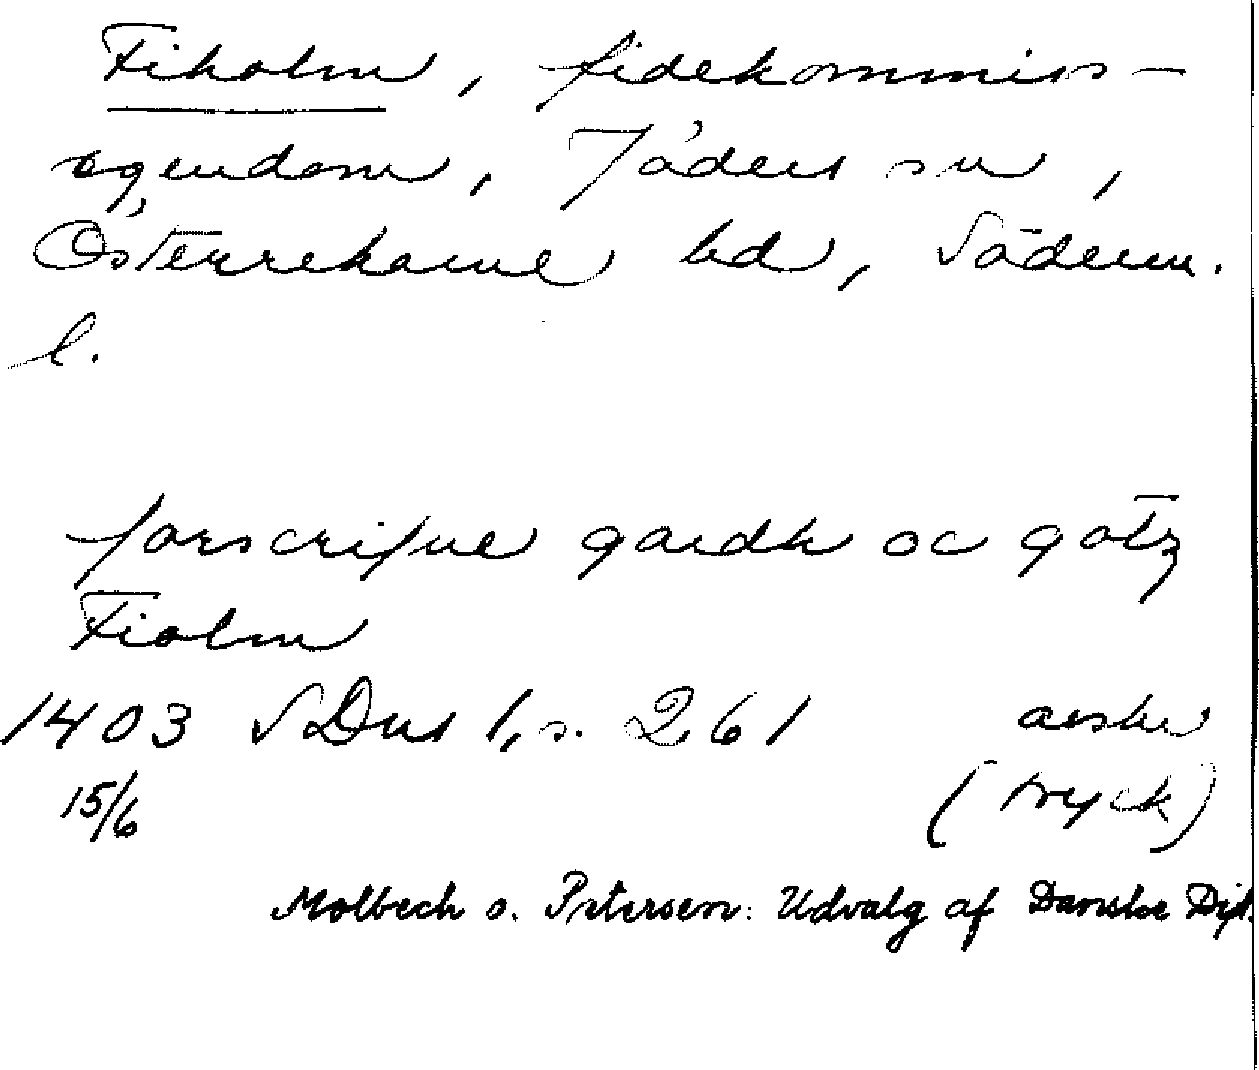 Fiholm, fidekommiss-
egendom, Jäders sn,
Österrekarne hd, Söderm.
l.
forscrifne gardh oc gotz
Fiolm
1403 SDns 1, s. 261 avskr
15/6 (tryck)
Molbech o. Petersen: Udvalg af Danske Dipl.